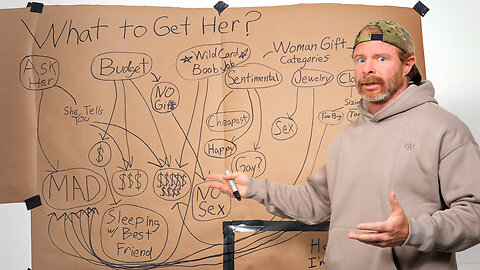 What to Get Her?
Ask
Her
Budget
★Wild Card★
Boob
Job
Sentimental
Woman Gift
Categories
Jewelry
Clo
She Tells
You
NO
Gift
Cheapest
Sex
Sizing
Too Big
Too
$
Happy
MAD
$$$
Gay?
No
Sex
Sleeping
w/ Best
Friend